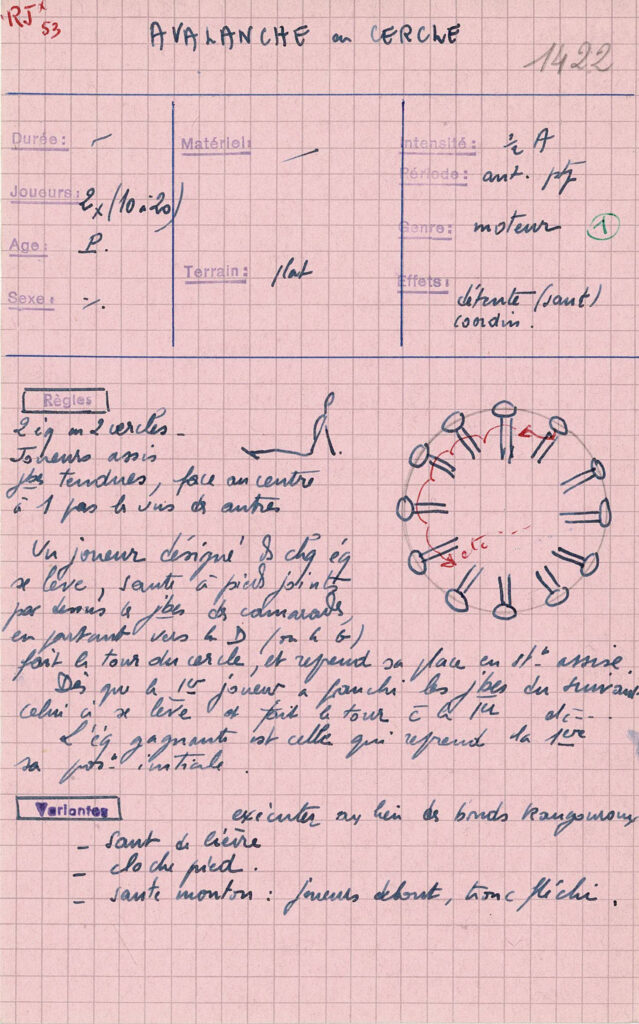 RJx 53
AVALANCHE en CERCLE
1422
Durée: -
Joueurs: 2x (10 à 20)
Age: P.
Sexe: -/.
Matériel: -
Terrain: plat
Intensité: ½ A
Période: ant. ptf
Genre: moteur 1
Effets: détente (saut)
coordin.
Règles
2 éq en 2 cercles -
Joueurs assis
jbes tendues, face au centre
à 1 pas les uns des autres
etc
Un joueur désigné ds chq éq
se lève, saute à pieds joints
par dessus les jbes des camarades,
en partant vers la D (ou la G)
fait le tour du cercle, et reprend sa place en stion assise.
Dès que le 1er joueur a franchi les jbes du suivant
celui ci se lève et fait le tour c̄ le 1er d°---
L'éq gagnante est celle qui reprend la 1ère
sa poson initiale
Variantes
exécuter au lieu des bonds kangourous
- saut de lièvre
- cloche pied.
- saute mouton : joueurs debout, tronc fléchi.